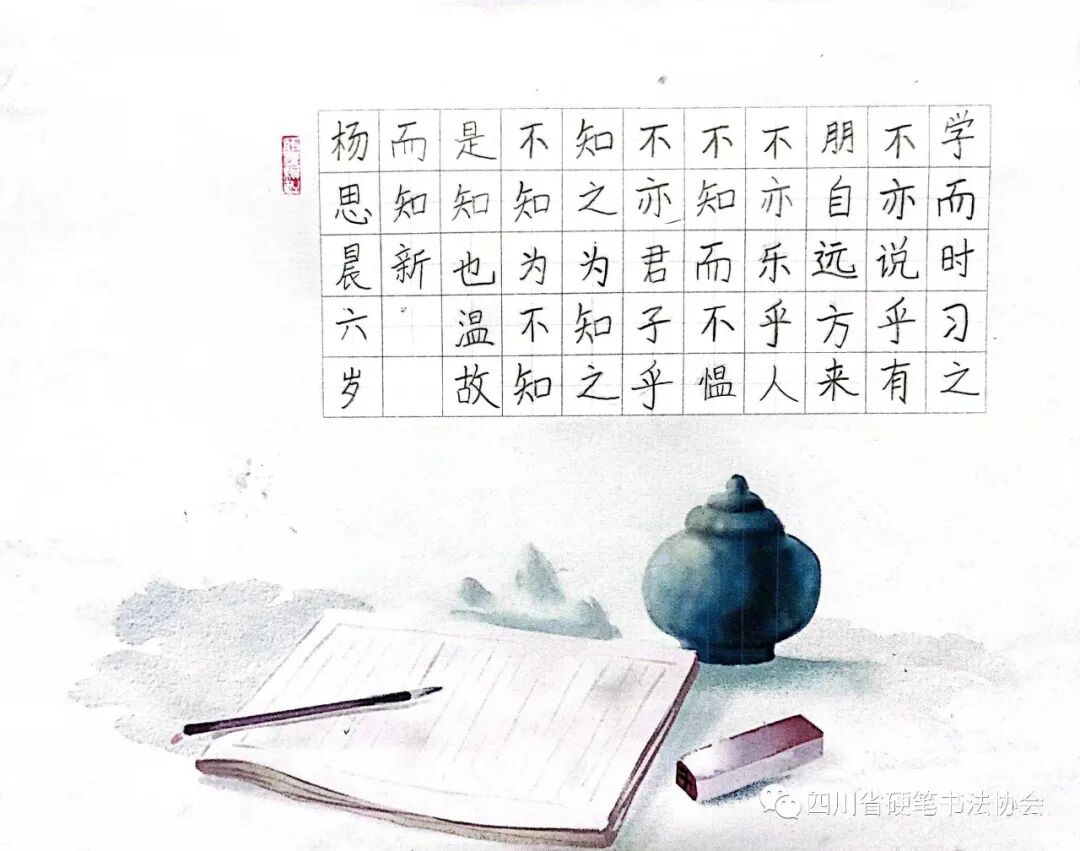 学而时习之
不亦说乎有
朋自远方来
不亦乐乎人
不知而不愠
不亦君子乎
知之为知之
不知为不知
是知也温故
而知新
杨思晨六岁
四川省硬笔书法协会